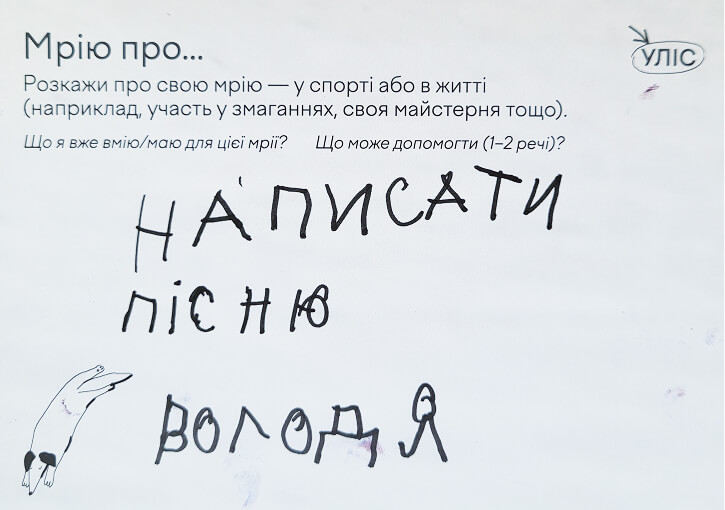 Мрію про...
УЛІС
Розкажи про свою мрію — у спорті або в житті
(наприклад, участь у змаганнях, своя майстерня тощо).
Що я вже вмію/маю для цієї мрії? Що може допомогти (1–2 речі)?
НАПИСАТИ
ПІСНЮ
ВОЛОДЯ